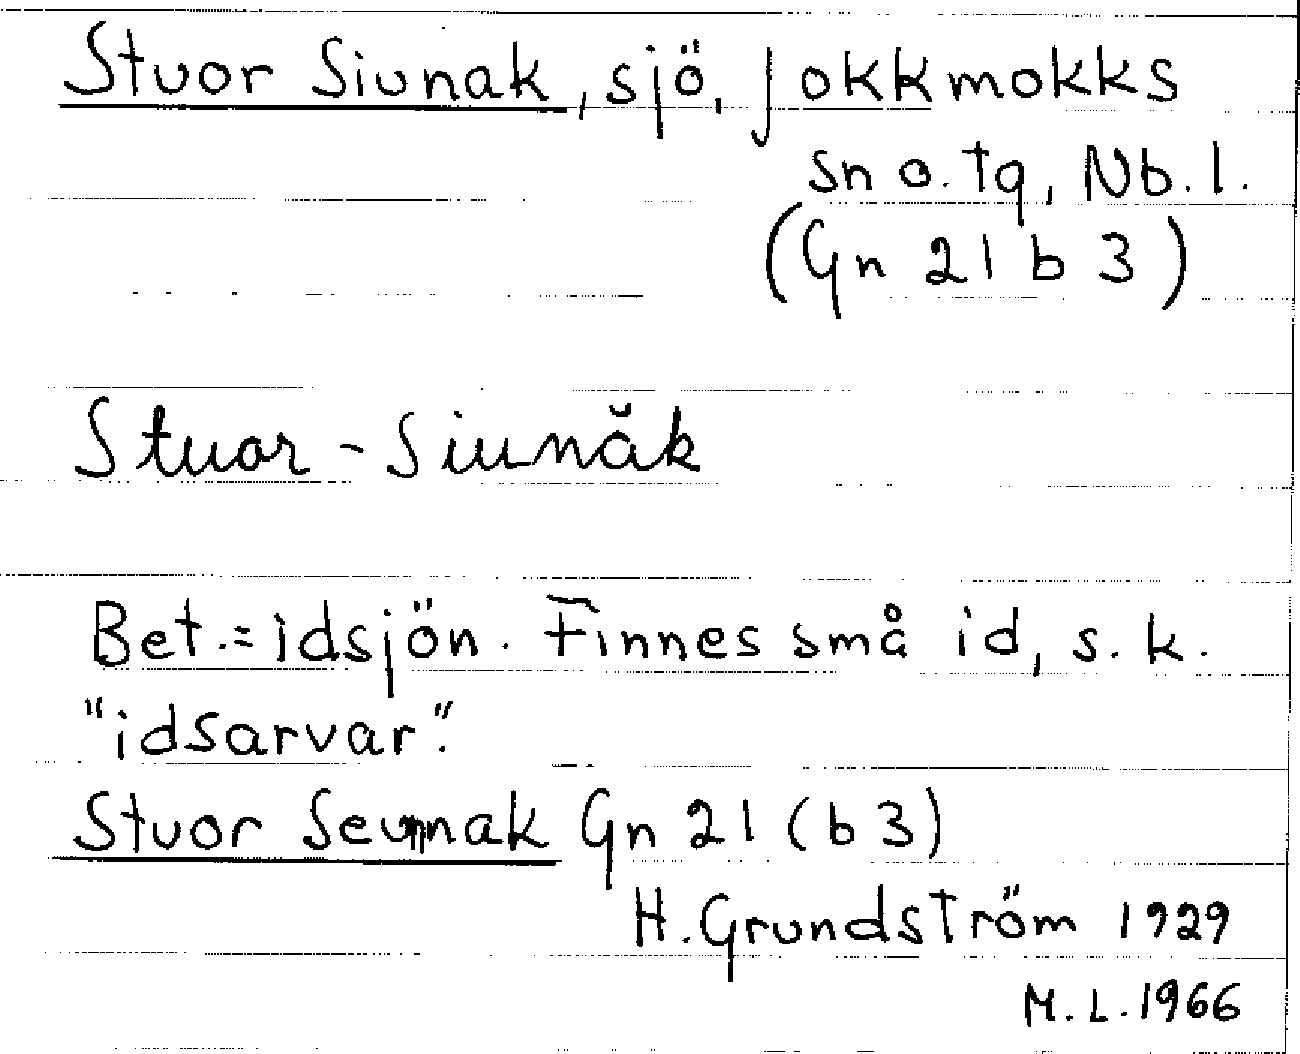 Stuor Siunak, sjö, Jokkmokks
sn o. tg, Nb. l.
(Gn 21 b 3)
Stuor-Siunăk
Bet.= idsjön. Finnes små id, s. k.
"idsarvar".
Stuor Seunnak Gn 21 (b 3)
H. Grundström 1929
M. L. 1966